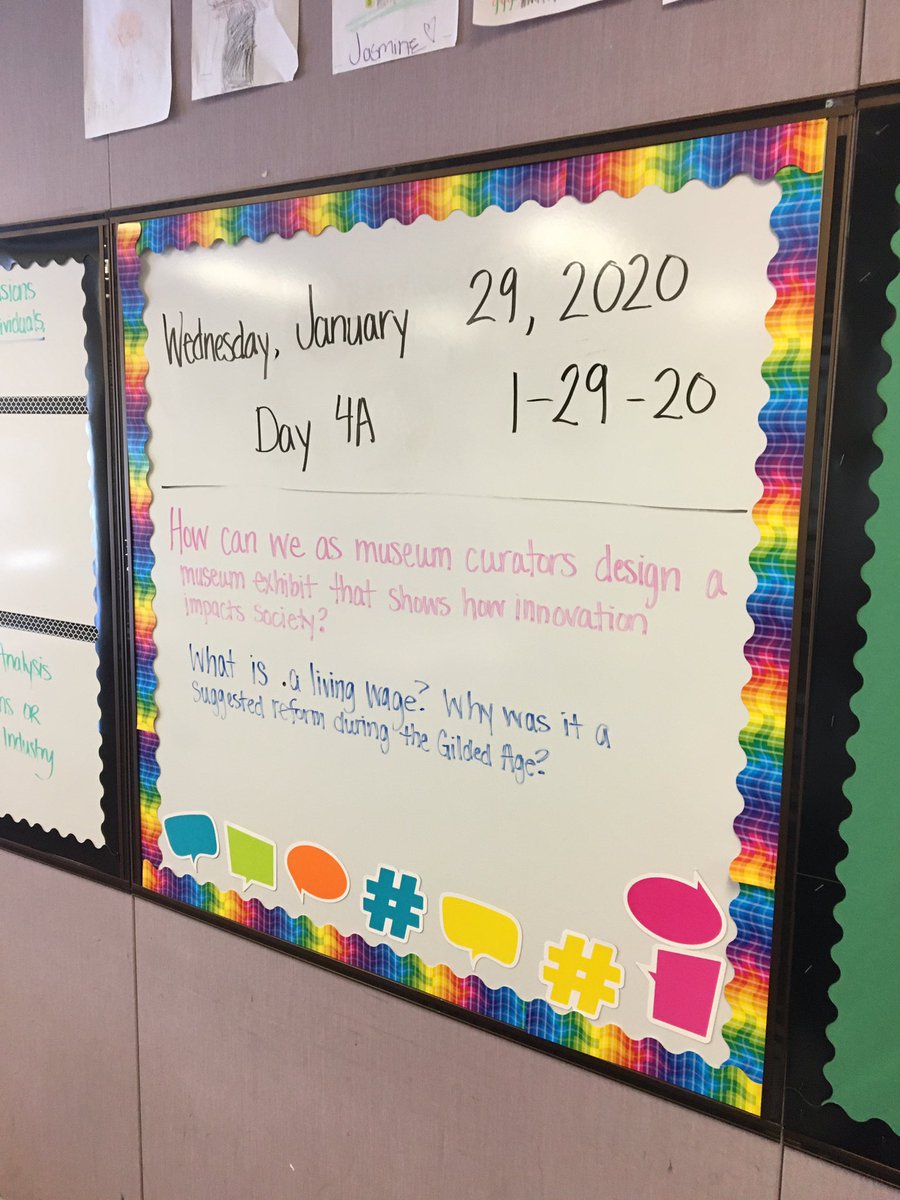 Jasmine
sions
ividuals,
Wednesday, January 29, 2020
Day 4A 1-29-20
How can we as museum curators design a
museum exhibit that shows how innovation
impacts society?
What is .a living wage? Why was it a
suggested reform during the Gilded Age?
Analysis
ns OR
Industry
#
#